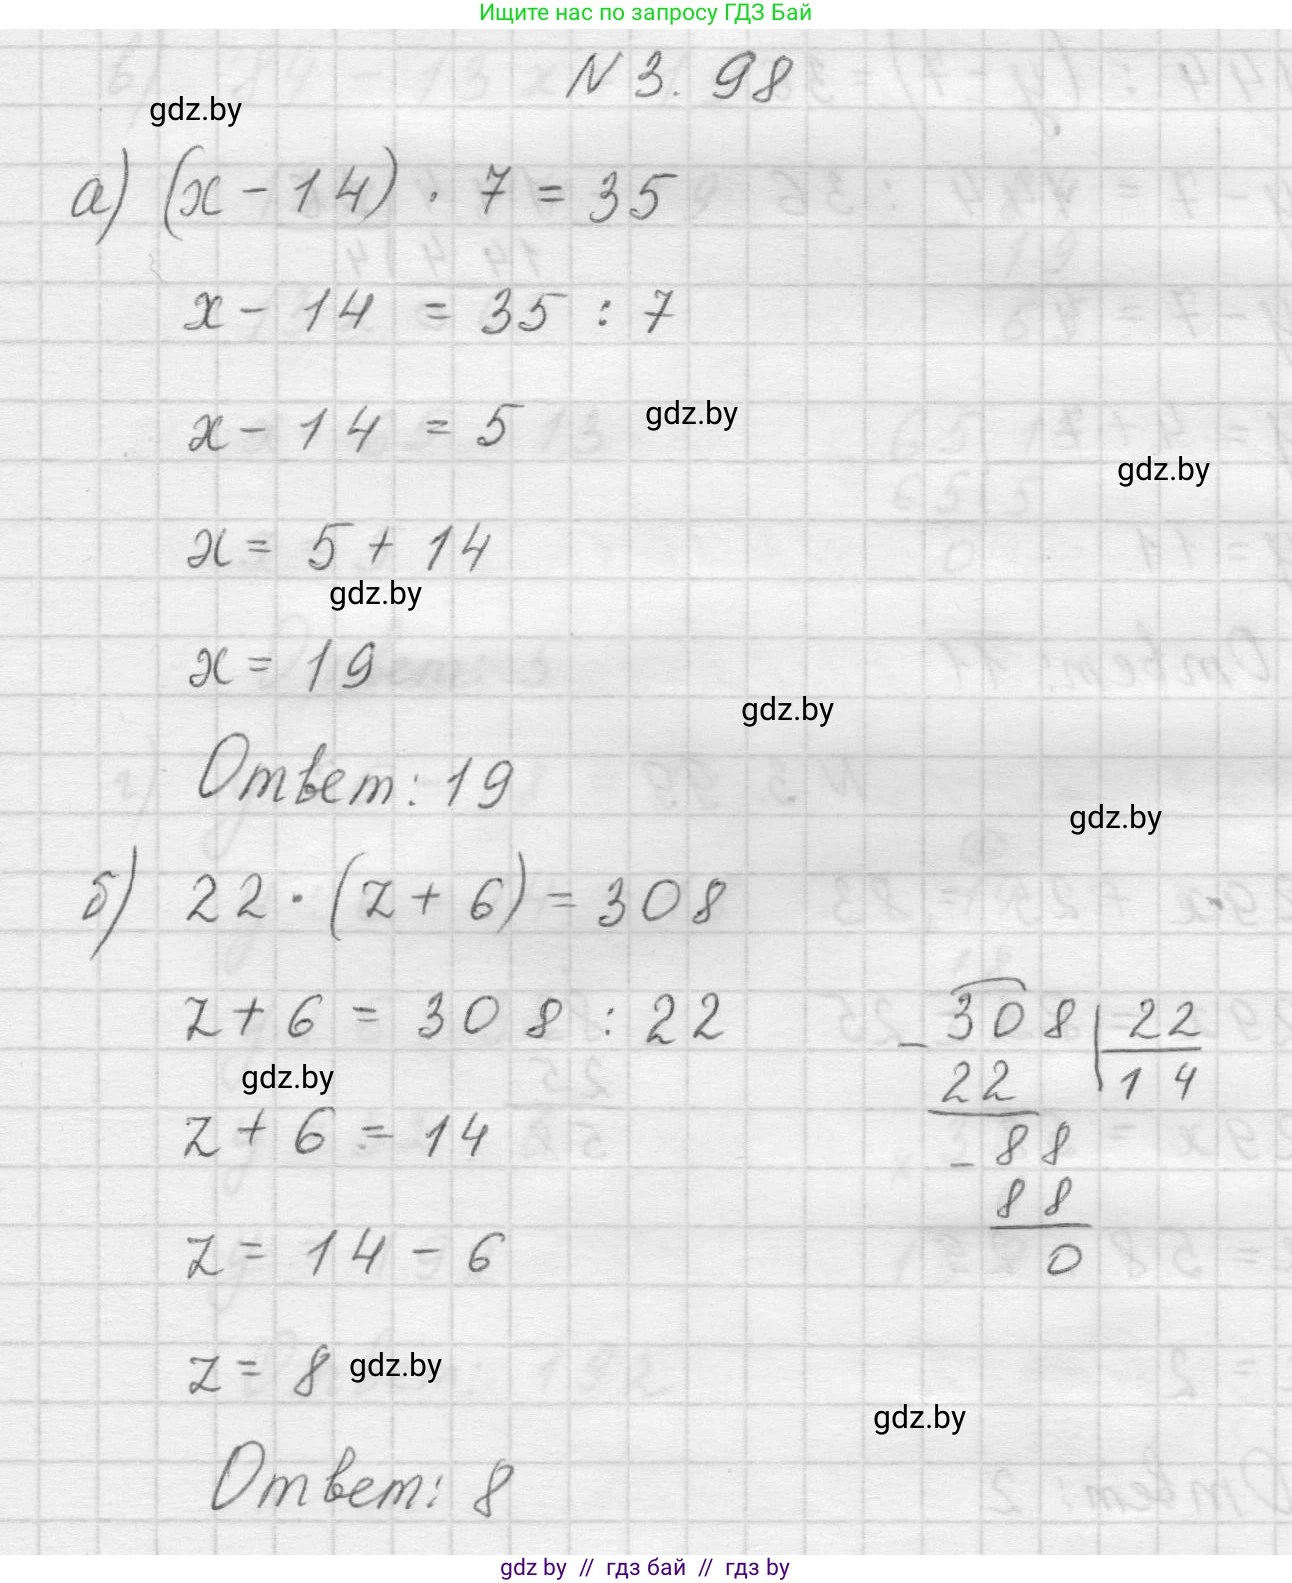 Ищите нас по запросу ГДЗ Бай
N 3. 98
gdz.by
а) (x - 14) · 7 = 35
x - 14 = 35 : 7
x - 14 = 5
gdz.by
gdz.by
x = 5 + 14
gdz.by
x = 19
gdz.by
Ответ: 19
gdz.by
б) 22 · (z + 6) = 308
z + 6 = 308 : 22
308 22
22 14
gdz.by
z + 6 = 14
- 88
88
z = 14 - 6
0
z = 8
gdz.by
gdz.by
Ответ: 8
gdz by // гдз бай // гдз by